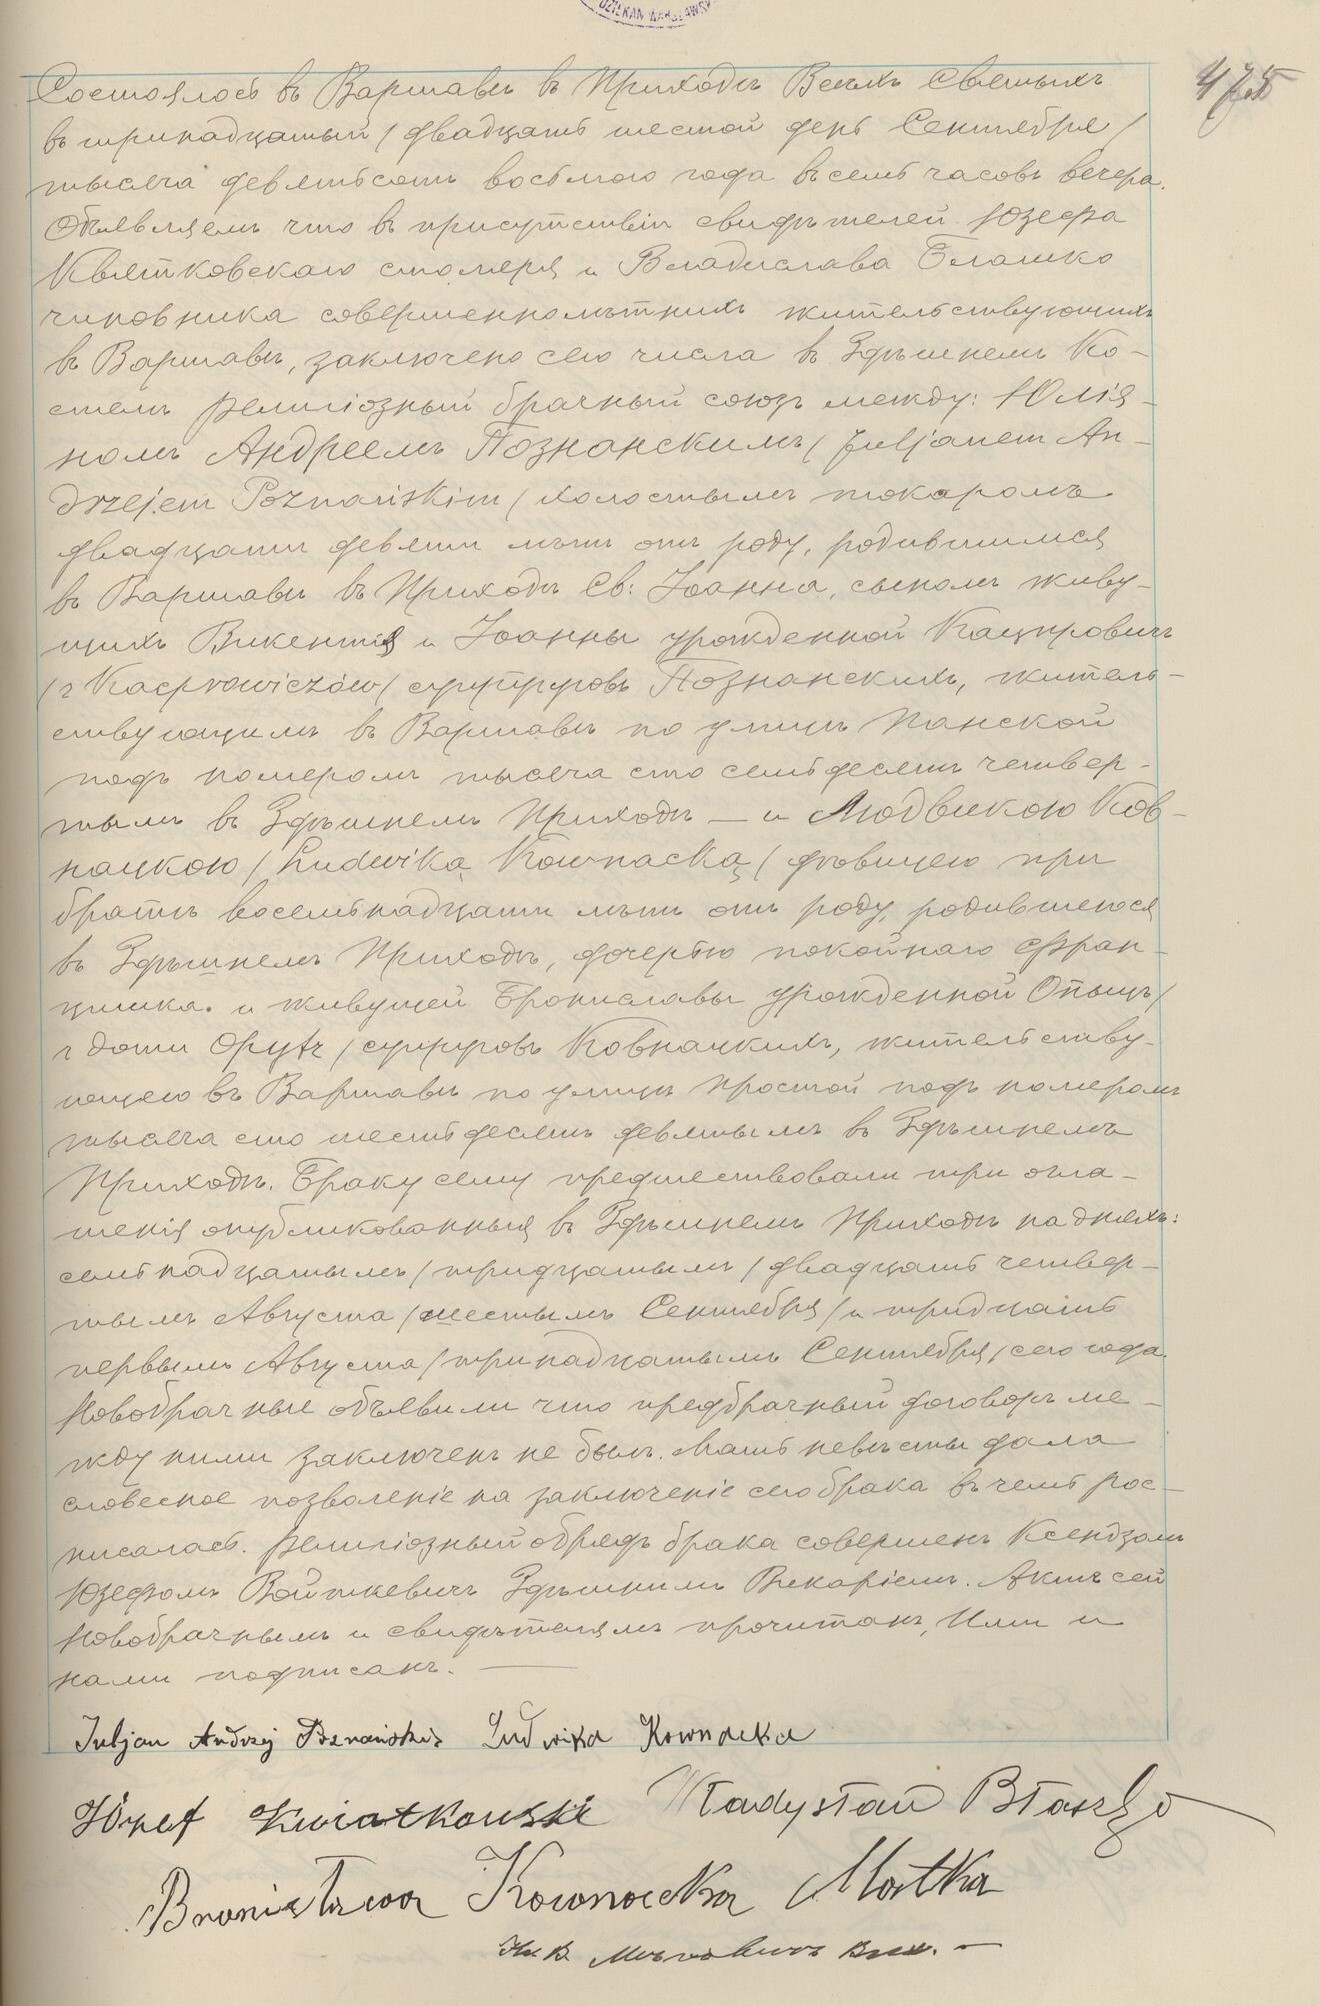 DZIEKAN WARSZAWSKI
475
Состоялось въ Варшавѣ въ Приходѣ Всѣхъ Святыхъ
въ тринадцатый / двадцать шестой день Сентября /
тысяча девятьсотъ восьмого года въ семь часовъ вечера.
Объявляемъ что въ присутствіи свидѣтелей Юзефа
Квятковскаго столяра и Владислава Блашко
чиновника совершеннолѣтнихъ жительствующихъ
въ Варшавѣ, заключено сего числа въ Здѣшнемъ Ко-
стелѣ религіозный брачный союзъ между: Юлія-
номъ Андреемъ Познанскимъ / Juljanem An-
drzejem Poznańskim / холостымъ токаромъ
двадцати девяти лѣтъ отъ роду, родившимся
въ Варшавѣ въ Приходѣ Св: Іоанна, сыномъ живу-
щихъ Викентія и Іоанны урожденной Кацпровичъ
/ z Kacprowiczów / супруговъ Познанскихъ, житель-
ствующимъ въ Варшавѣ по улицѣ Панской
подъ номеромъ тысяча сто семьдесятъ четвер-
тымъ въ Здѣшнемъ Приходѣ — и Людвикою Ков-
нацкою / Ludwiką Kownacką / дѣвицею при
братѣ восемьнадцати лѣтъ отъ роду, родившеюся
въ Здѣшнемъ Приходѣ, дочерью покойнаго Фран-
цишка и живущей Брониславы урожденной Опыцъ /
z domu Opytz / супруговъ Ковнацкихъ, жительству-
ющею въ Варшавѣ по улицѣ Простой подъ номеромъ
тысяча сто шестьдесятъ девятымъ въ Здѣшнемъ
Приходѣ. Браку сему предшествовали три огла-
шенія опубликованныя въ Здѣшнемъ Приходѣ на дняхъ:
семьнадцатымъ / тридцатымъ / двадцать четвер-
тымъ Августа / шестымъ Сентября / и тридцать
первымъ Августа / тринадцатымъ Сентября / сего года.
Новобрачные объявили что предбрачный договоръ ме-
жду ними заключенъ не былъ. Мать невѣсты дала
словесное позволеніе на заключеніе сего брака въ чемъ рос-
писалась. Религіозный обрядъ брака совершенъ Ксендзомъ
Юзефомъ Войткевичъ Здѣшнимъ Викаріемъ. Актъ сей
Новобрачнымъ и свидѣтелямъ прочитанъ, Ими и
нами подписанъ. —
Juljan Andrzej Poznański Ludwika Kownacka
Józef Kwiatkowski Władysław Błaszko
Bronisława Kownacka Matka
Кс. В. Вик. —